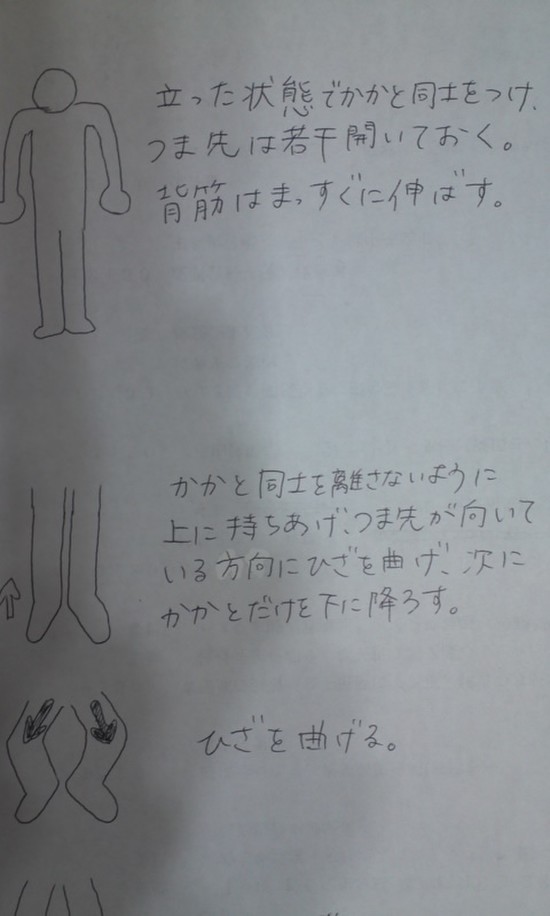 立った状態でかかと同士をつけ、
つま先は若干開いておく。
背筋はまっすぐに伸ばす。
かかと同士を離さないように
上に持ちあげ、つま先が向いて
いる方向にひざを曲げ、次に
かかとだけを下に降ろす。
ひざを曲げる。